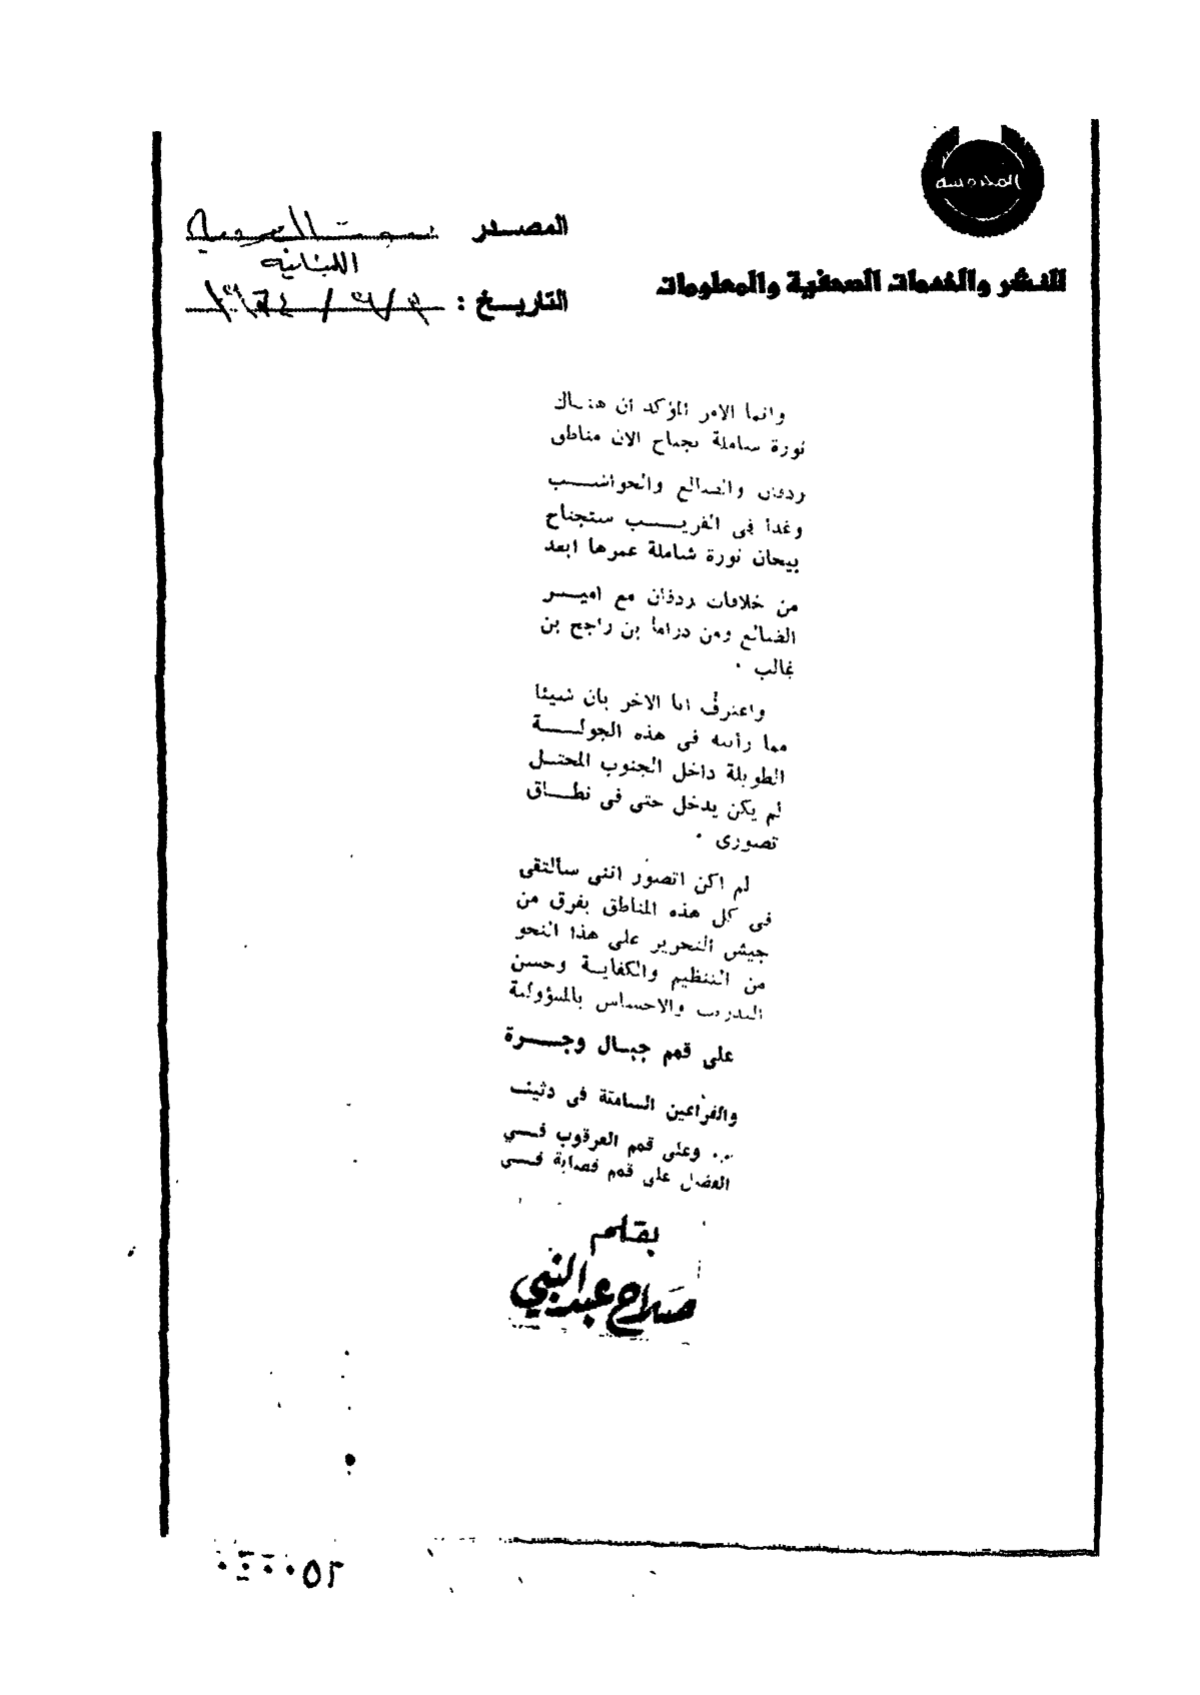 المحروسة
للنشر والخدمات الصحفية والمعلومات
المصدر صوت العروبة
اللبنانية
التاريخ :
وانما الامر المؤكد ان هناك
ثورة شاملة تجتاح الان مناطق
ردفان والضالع والحواشب
وغدا فى القريب ستجتاح
بيحان ثورة شاملة عمرها ابعد
من خلافات ردفان مع امير
الضالع ومن دراما بن راجح بن
غالب .
واعترف انا الاخر بان شيئا
مما رأيته فى هذه الجولة
الطويلة داخل الجنوب المحتل
لم يكن يدخل حتى فى نطاق
تصورى .
لم اكن اتصور اننى سألتقى
فى كل هذه المناطق بفرق من
جيش التحرير على هذا النحو
من التنظيم والكفاية وحسن
التدريب والاحساس بالمسؤولية
على قمم جبال وجرة
والفراعين السامتة فى دثينة
.. وعلى قمم العرقوب فى
الفضل على قمم فى
بقلم
صلاح عبد النبي